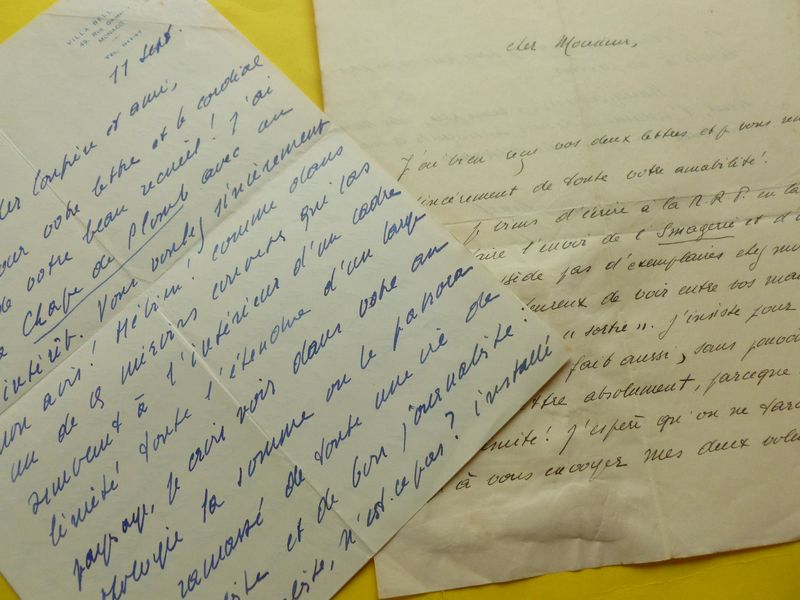 VILLA BELL
MONACO
11 Sept.
confrère et ami,
pour votre lettre et le cordial
de votre beau recueil! J'ai
Chape de Plomb avec un
intérêt. Vous voulez sincèrement
mon avis! Hé bien! comme dans
un de ces miroirs convexes qui ras
semblent à l'intérieur d'un cadre
limité toute l'étendue d'un large
paysage, je crois voir dans votre an
thologie la somme ou le panora
ramassé de toute une vie de
et de bon journaliste!
n'est-ce pas? installé
Cher Monsieur,
J'ai bien reçu vos deux lettres et je vous
sincèrement de toute votre amabilité!
Je viens d'écrire à la
l'envoi de l'Imagerie et d
pas d'exemplaires chez moi
de voir entre vos mai
"sortie". J'insiste pour
fait aussi, sans pouvoi
absolument, parceque
J'espère qu'on ne tar
à vous envoyer mes deux volu